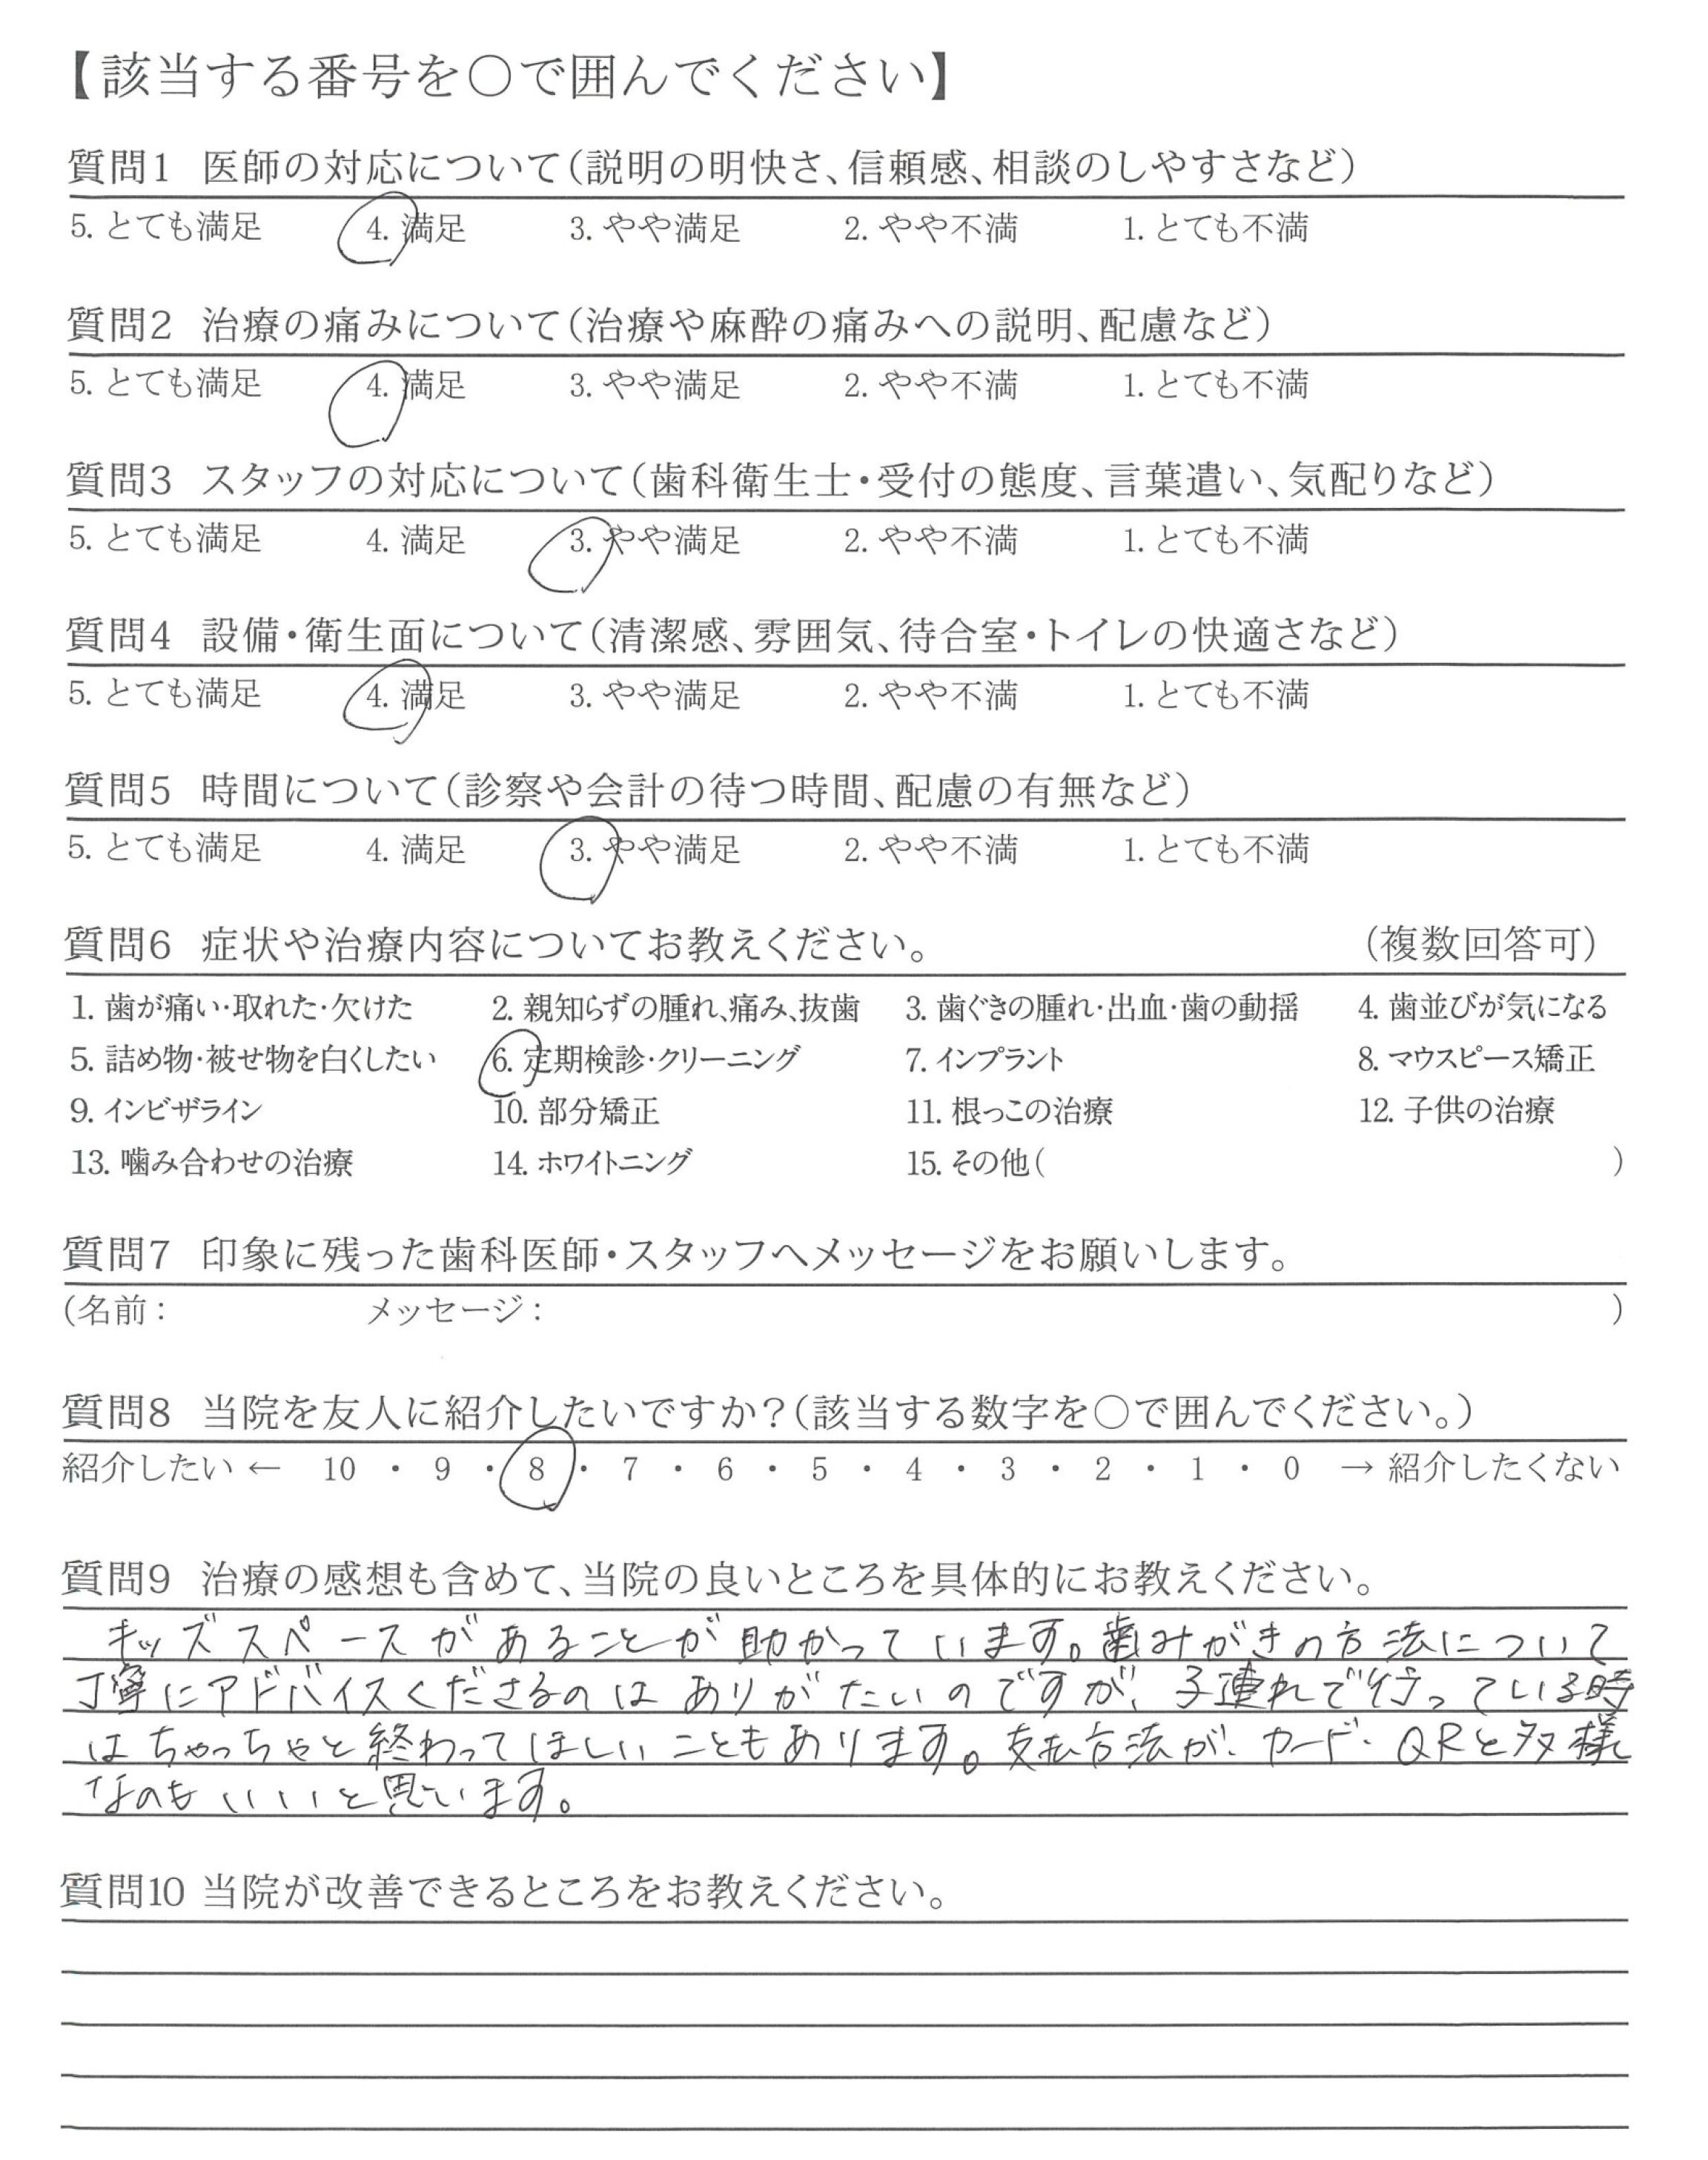 【該当する番号を○で囲んでください】
質問1 医師の対応について(説明の明快さ、信頼感、相談のしやすさなど)
5. とても満足 4. 満足 3. やや満足 2. やや不満 1. とても不満
質問2 治療の痛みについて(治療や麻酔の痛みへの説明、配慮など)
5. とても満足 4. 満足 3. やや満足 2. やや不満 1. とても不満
質問3 スタッフの対応について(歯科衛生士・受付の態度、言葉遣い、気配りなど)
5. とても満足 4. 満足 3. やや満足 2. やや不満 1. とても不満
質問4 設備・衛生面について(清潔感、雰囲気、待合室・トイレの快適さなど)
5. とても満足 4. 満足 3. やや満足 2. やや不満 1. とても不満
質問5 時間について(診察や会計の待つ時間、配慮の有無など)
5. とても満足 4. 満足 3. やや満足 2. やや不満 1. とても不満
質問6 症状や治療内容についてお教えください。 (複数回答可)
1. 歯が痛い・取れた・欠けた 2. 親知らずの腫れ、痛み、抜歯 3. 歯ぐきの腫れ・出血・歯の動揺 4. 歯並びが気になる
5. 詰め物・被せ物を白くしたい 6. 定期検診・クリーニング 7. インプラント 8. マウスピース矯正
9. インビザライン 10. 部分矯正 11. 根っこの治療 12. 子供の治療
13. 噛み合わせの治療 14. ホワイトニング 15. その他( )
質問7 印象に残った歯科医師・スタッフへメッセージをお願いします。
(名前: メッセージ: )
質問8 当院を友人に紹介したいですか?(該当する数字を○で囲んでください。)
紹介したい ← 10 ・ 9 ・ 8 ・ 7 ・ 6 ・ 5 ・ 4 ・ 3 ・ 2 ・ 1 ・ 0 → 紹介したくない
質問9 治療の感想も含めて、当院の良いところを具体的にお教えください。
キッズスペースがあることが助かっています。歯みがきの方法について
丁寧にアドバイスくださるのはありがたいのですが、子連れで行っている時
はちゃっちゃと終わってほしいこともあります。支払方法が、カード・QRと多様
なのもいいと思います。
質問10 当院が改善できるところをお教えください。